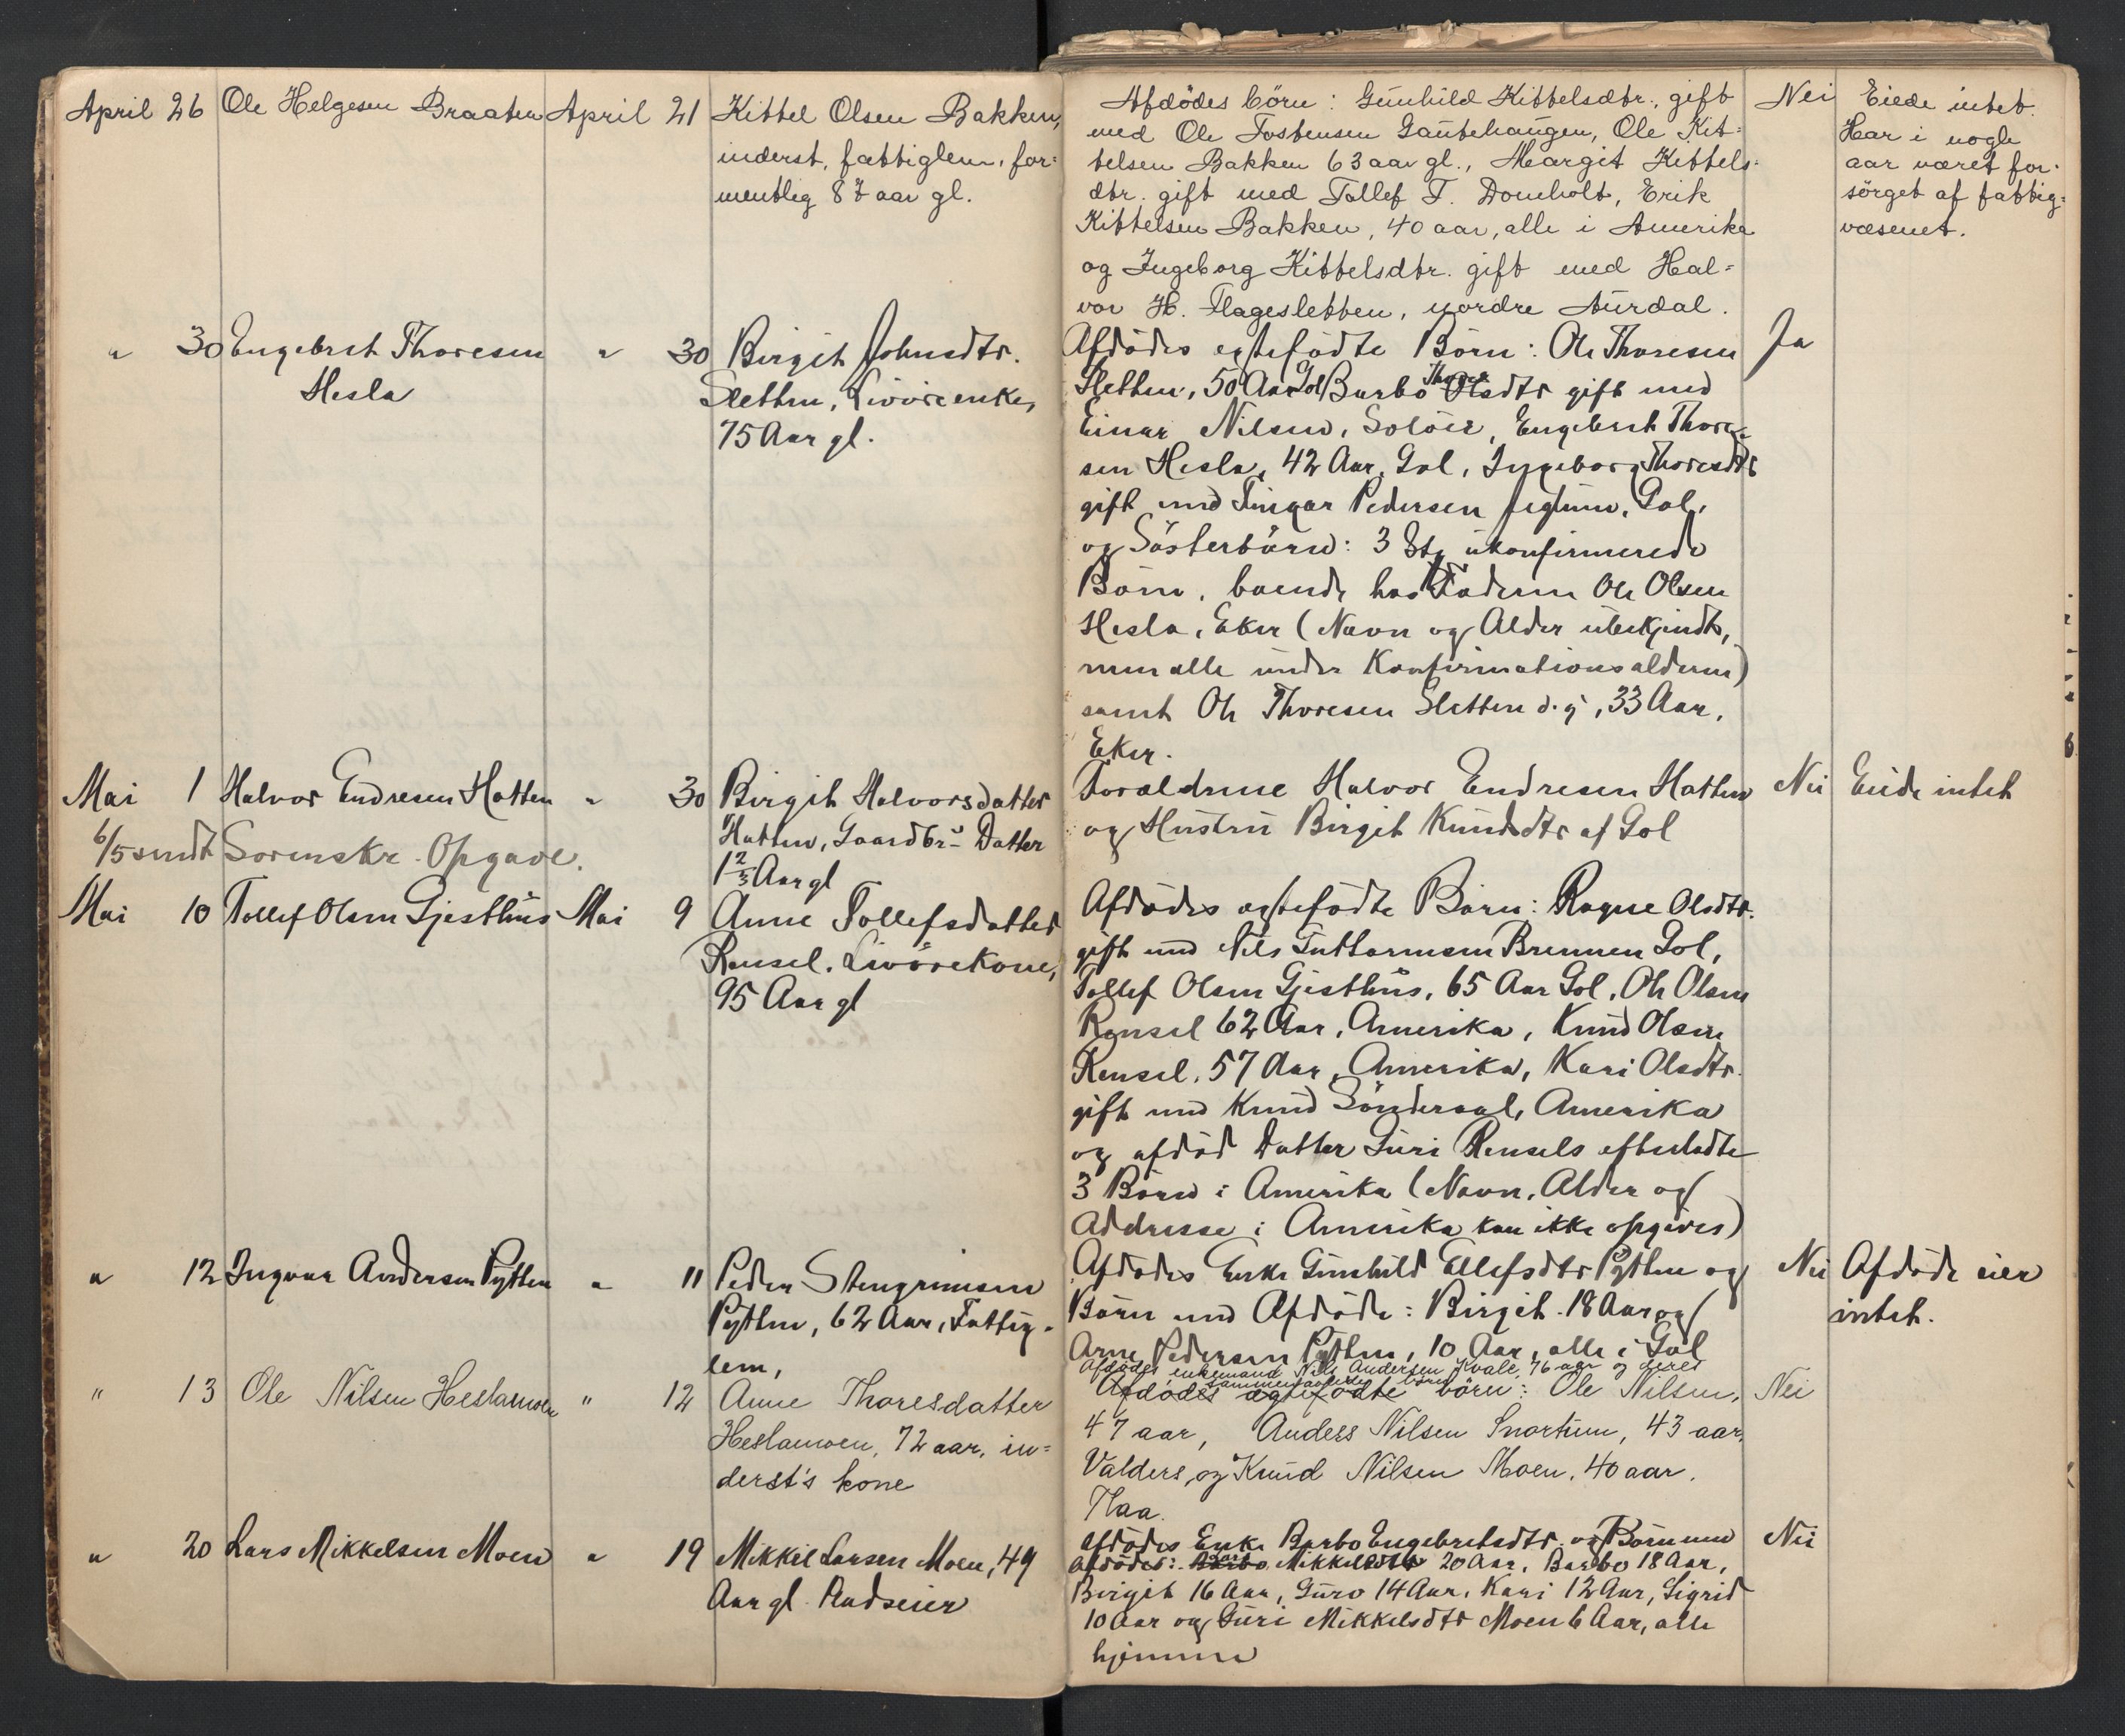 April 26 Ole Helgesen Braaten April 21 Kittel Olsen Bakken,
inderst, fattiglem, for=
mentlig 87 aar gl.
Afdödes börn: Gunhild Kittelsdtr., gift
med Ole Tostensen Gautehaugen, Ole Kit=
telsen Bakken 63 aar gl., Margit Kittels=
dtr. gift med Tollef T. Domholt, Erik
Kittelsen Bakken, 40 aar, alle i Amerika
og Ingeborg Kittelsdtr. gift med Hal=
vor H. Flagesletten, nordre Aurdal.
Nei
Eiede intet.
Har i nogle
aar været for=
sörget af fattig=
væsenet.
" 30 Engebret Thoresen
Hesla
" 30 Birgit Johnsdtr.
Sletten, Livöreenke,
75 Aar gl.
Afdödes egtefödte Börn: Ole Thoresen
Sletten, 50 Aar Gol, Barbo Thores Olsdtr gift med
Einar Nilsen, Solöer, Engebret Thore=
sen Hesla, 42 Aar, Gol, Ingeborg Thoresdtr
gift med Pedersen Gol,
og Sösterbörn: 3 Stk ukonfirmerede
Börn, boende hos Faderen Ole Olsen
Hesla, Eker (Navn og Alder ubekjendt,
men alle under Konfirmationsalderen)
samt Ole Thoresen Sletten d.y, 33 Aar,
Eker.
Ja
Mai 1 Halvor Endresen Hatten " 30 Birgit Halvorsdatter
Hatten, Gaardbr. Datter
1 2/3 Aar gl
6/5 sendt Sorenskr. Opgave.
Forældrene Halvor Endresen Hatten
og Hustru Birgit Knudsdtr af Gol
Nei Eiede intet
Mai 10 Tollef Olsen Gjesthus Mai 9 Anne Tollefsdatter
Rensel. Livörekone,
95 Aar gl
Afdödes egtefödte Börn: Ragne Olsdtr.
gift med Nils Guttormsen Brennen Gol,
Tollef Olsen Gjesthus, 65 Aar Gol, Ole Olsen
Rensel 62 Aar, Amerika, Knud Olsen
Rensel, 57 Aar, Amerika, Kari Olsdtr.
gift med Knud Amerika
og afdöd Datter Guri Rensels efterladte
3 Börn i Amerika (Navn, Alder og
Addresse i Amerika kan ikke opgives)
" 12 Ingvar Andersen Pytten " 11 Peder Stengrimsen
Pytten, 62 Aar, Fattig-
lem,
Afdödes Enke Gunhild Ellefsdtr Pytten og
Börn med Afdöde: Birgit 18 Aar og
Arne Pedersen Pytten, 10 Aar, alle i Gol
Nei Afdöde eier
intet.
" 13 Ole Nilsen Heslamoen " 12 Anne Thoresdatter
Heslamoen, 72 aar, in=
derst's kone
Afdödes enkemand Nils Andersen Kvale, 76 aar og deres
sammenavlede börn
Afdödes egtefödte börn: Ole Nilsen,
47 aar, Anders Nilsen Snortum, 43 aar,
Valders, og Knud Nilsen Moen, 40 aar.
Flaa.
Nei
" 20 Lars Mikkelsen Moen " 19 Mikkel Larsen Moen, 49
Aar gl. Pladseier
Afdödes Enke Barbo Engebretsdtr. og Börn med
Afdöde: Mikkelsdtr 20 Aar, Barbo 18 Aar,
Birgit 16 Aar, Guro 14 Aar, Kari 12 Aar, Sigrid
10 Aar og Guri Mikkelsdtr Moen 6 Aar, alle
hjemme
Nei